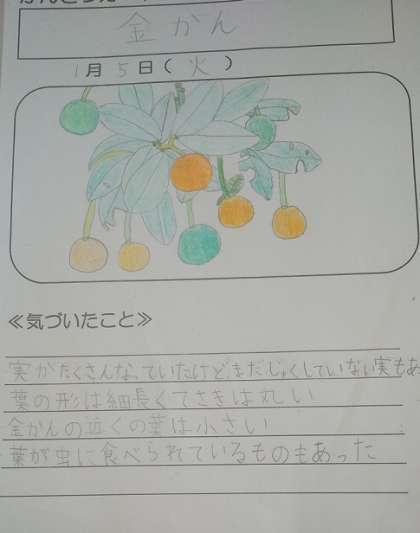 金かん
1月5日(火)
≪気づいたこと≫
実がたくさんなっていたけど、まだじゅくしていない実もあ
葉の形は細長くてさきは丸い
金かんの近くの葉は小さい
葉が虫に食べられているものもあった